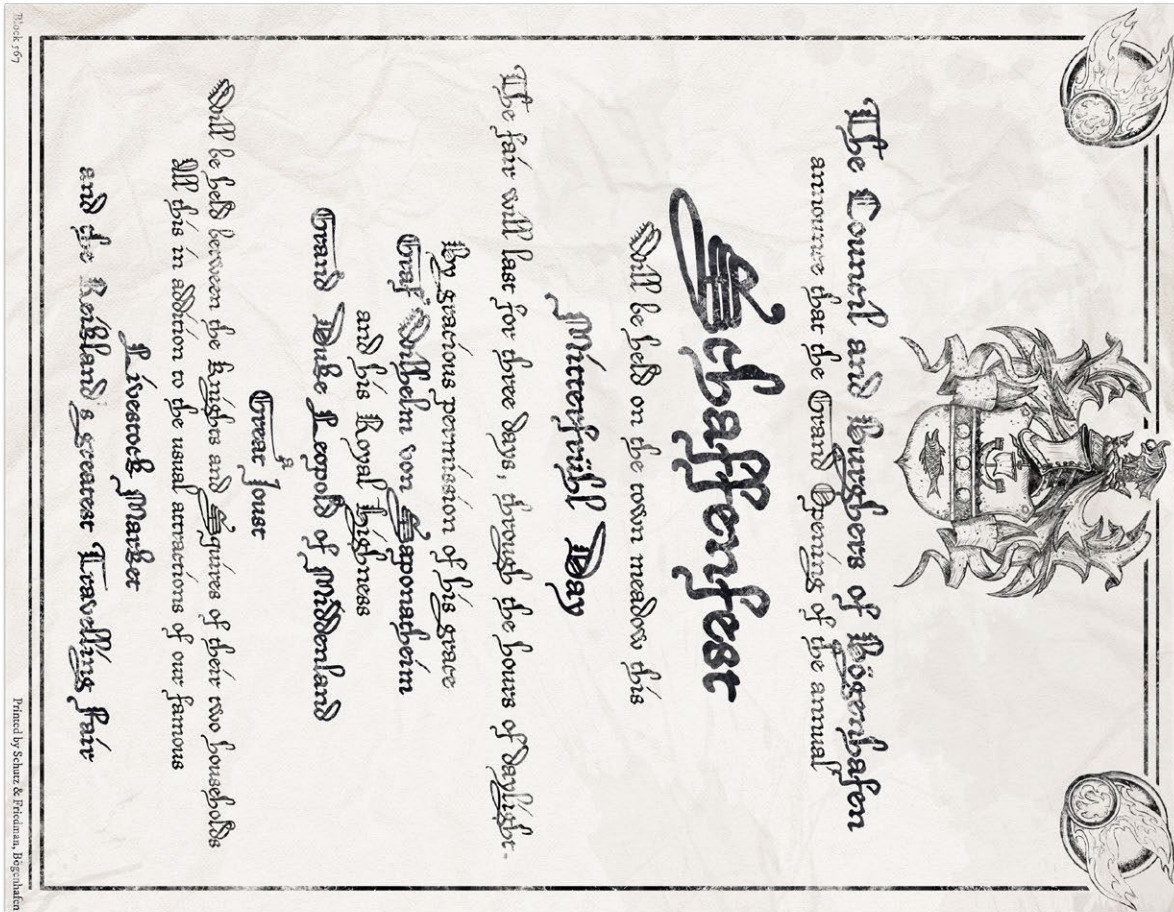 The Council and Burghers of Bögenhafen
announce that the Grand Opening of the annual
Schaffenfest
Will be held on the town meadow this
Mitterfrühl Day
The fair will last for three days, through the hours of daylight.
By gracious permission of his grace
Graf Wilhelm von Saponatheim
and his Royal highness
Grand Duke Leopold of Middenland
a
Great Joust
Will be held between the knights and Squires of their two households
All this in addition to the usual attractions of our famous
Livestock Market
and the Reikland's greatest Travelling Fair
Block 567
Printed by Schutz & Friedman, Bögenhafen